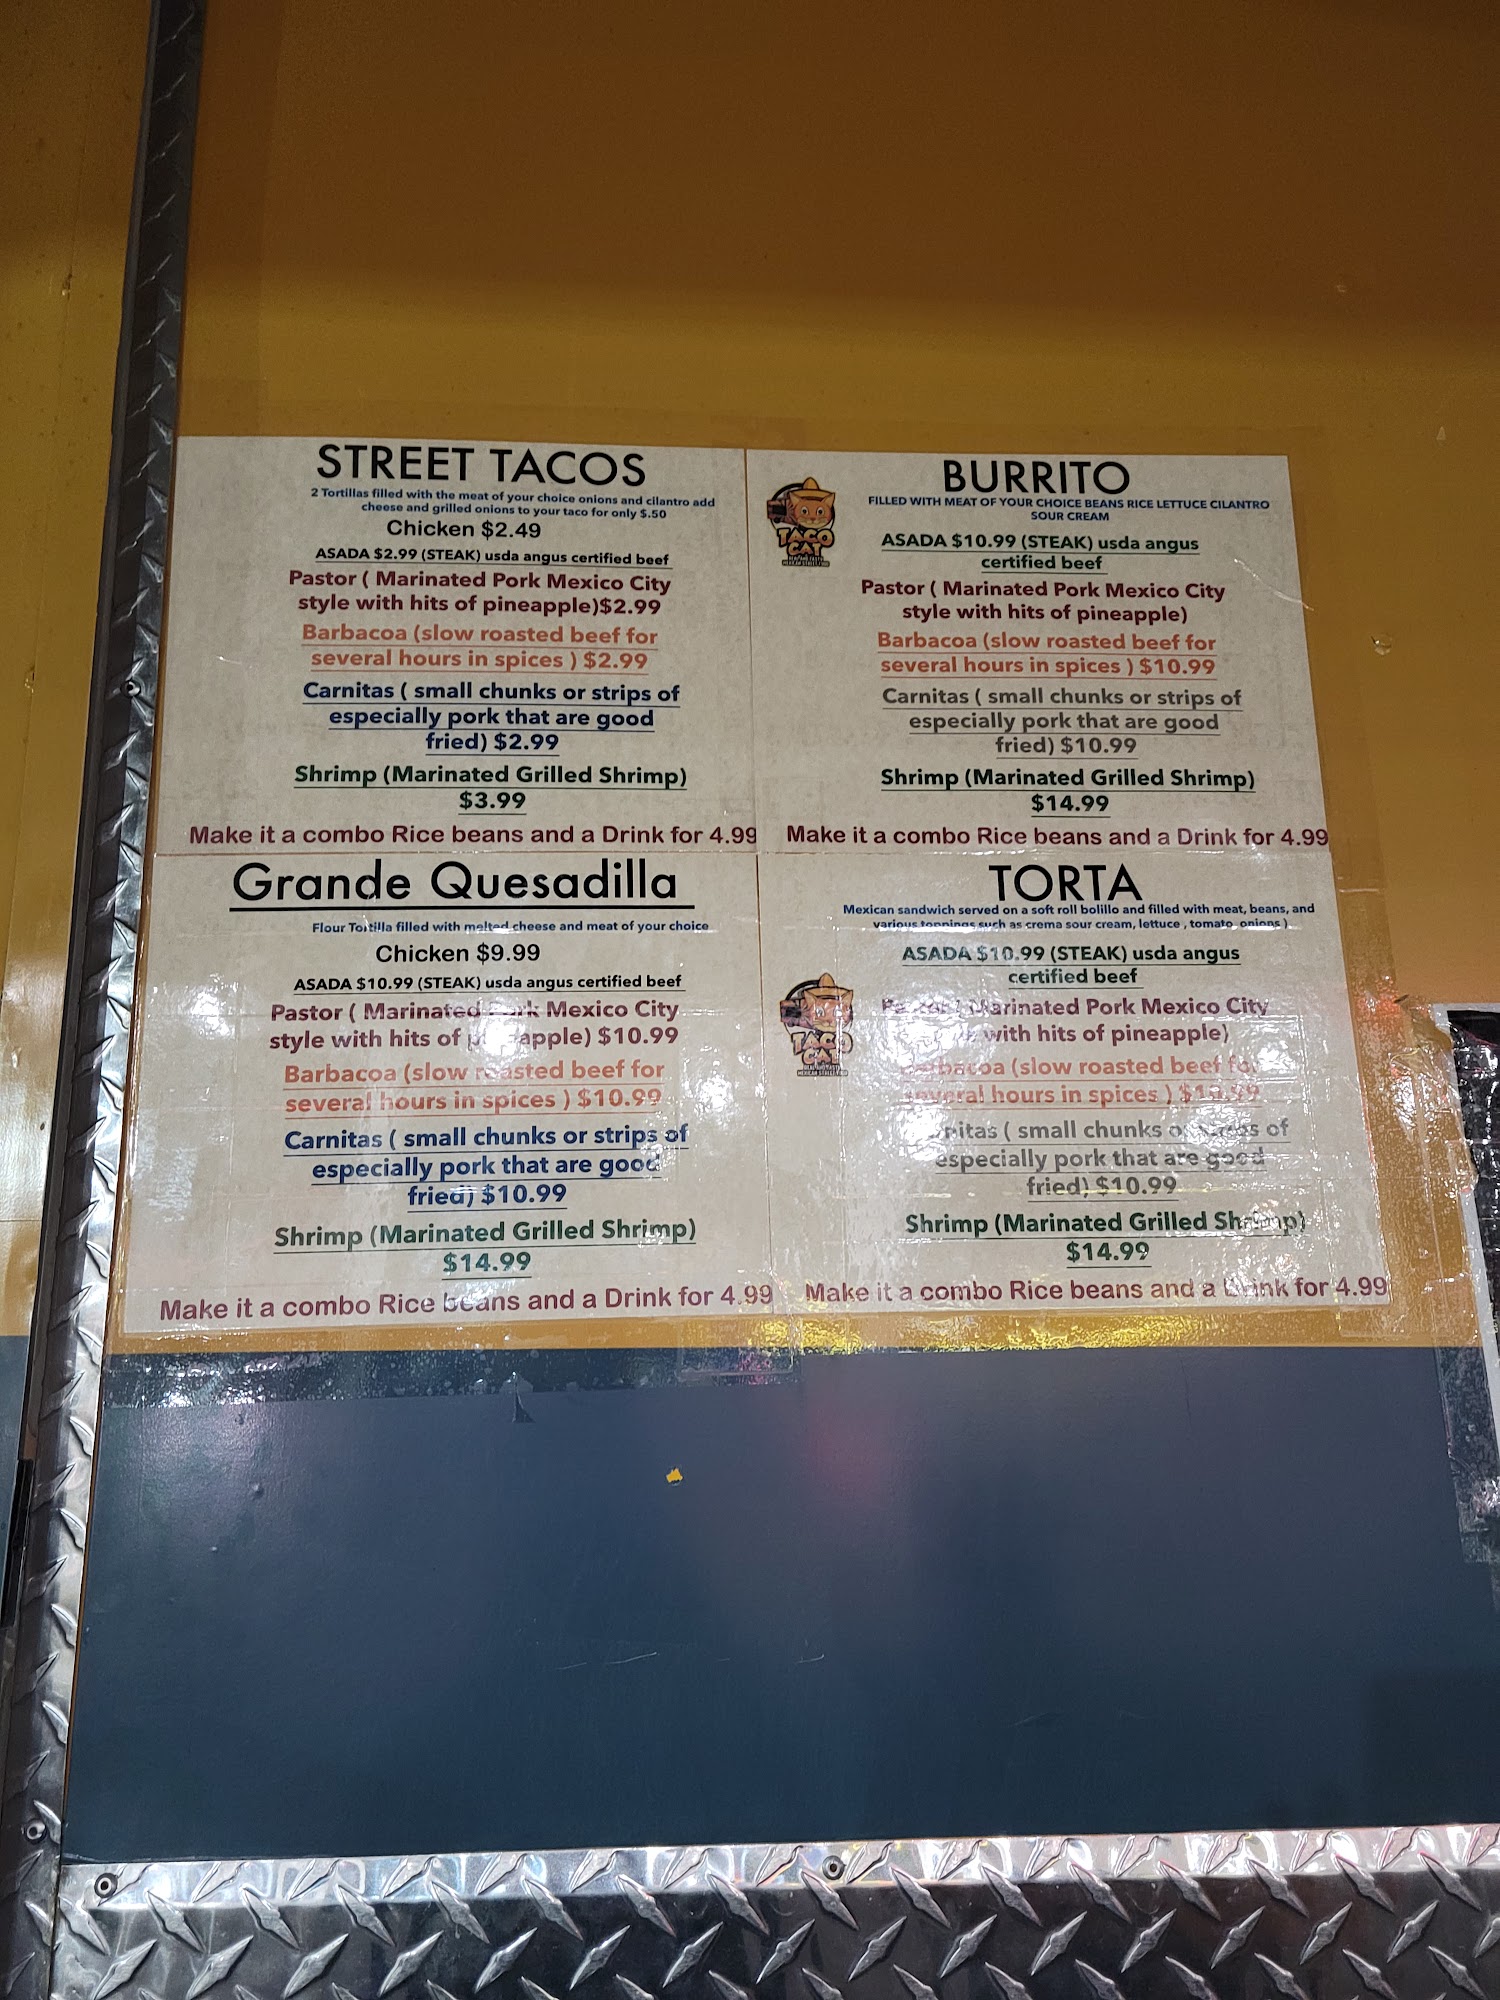 STREET TACOS
2 Tortillas filled with the meat of your choice onions and cilantro add
cheese and grilled onions to your taco for only $.50
Chicken $2.49
ASADA $2.99 (STEAK) usda angus certified beef
Pastor ( Marinated Pork Mexico City
style with hits of pineapple)$2.99
Barbacoa (slow roasted beef for
several hours in spices ) $2.99
Carnitas ( small chunks or strips of
especially pork that are good
fried) $2.99
Shrimp (Marinated Grilled Shrimp)
$3.99
Make it a combo Rice beans and a Drink for 4.99
TACO
CAT
BURRITO
FILLED WITH MEAT OF YOUR CHOICE BEANS RICE LETTUCE CILANTRO
SOUR CREAM
ASADA $10.99 (STEAK) usda angus
certified beef
Pastor ( Marinated Pork Mexico City
style with hits of pineapple)
Barbacoa (slow roasted beef for
several hours in spices ) $10.99
Carnitas ( small chunks or strips of
especially pork that are good
fried) $10.99
Shrimp (Marinated Grilled Shrimp)
$14.99
Make it a combo Rice beans and a Drink for 4.99
Grande Quesadilla
Flour Tortilla filled with melted cheese and meat of your choice
Chicken $9.99
ASADA $10.99 (STEAK) usda angus certified beef
Pastor ( Marinated Pork Mexico City
style with hits of pineapple) $10.99
Barbacoa (slow roasted beef for
several hours in spices ) $10.99
Carnitas ( small chunks or strips of
especially pork that are good
fried) $10.99
Shrimp (Marinated Grilled Shrimp)
$14.99
Make it a combo Rice beans and a Drink for 4.99
TACO
CAT
TORTA
Mexican sandwich served on a soft roll bolillo and filled with meat, beans, and
various toppings such as crema sour cream, lettuce , tomato, onions )
ASADA $10.99 (STEAK) usda angus
certified beef
Pastor ( Marinated Pork Mexico City
with hits of pineapple)
Barbacoa (slow roasted beef for
several hours in spices ) $10.99
Carnitas ( small chunks or strips of
especially pork that are good
fried) $10.99
Shrimp (Marinated Grilled Shrimp)
$14.99
Make it a combo Rice beans and a Drink for 4.99